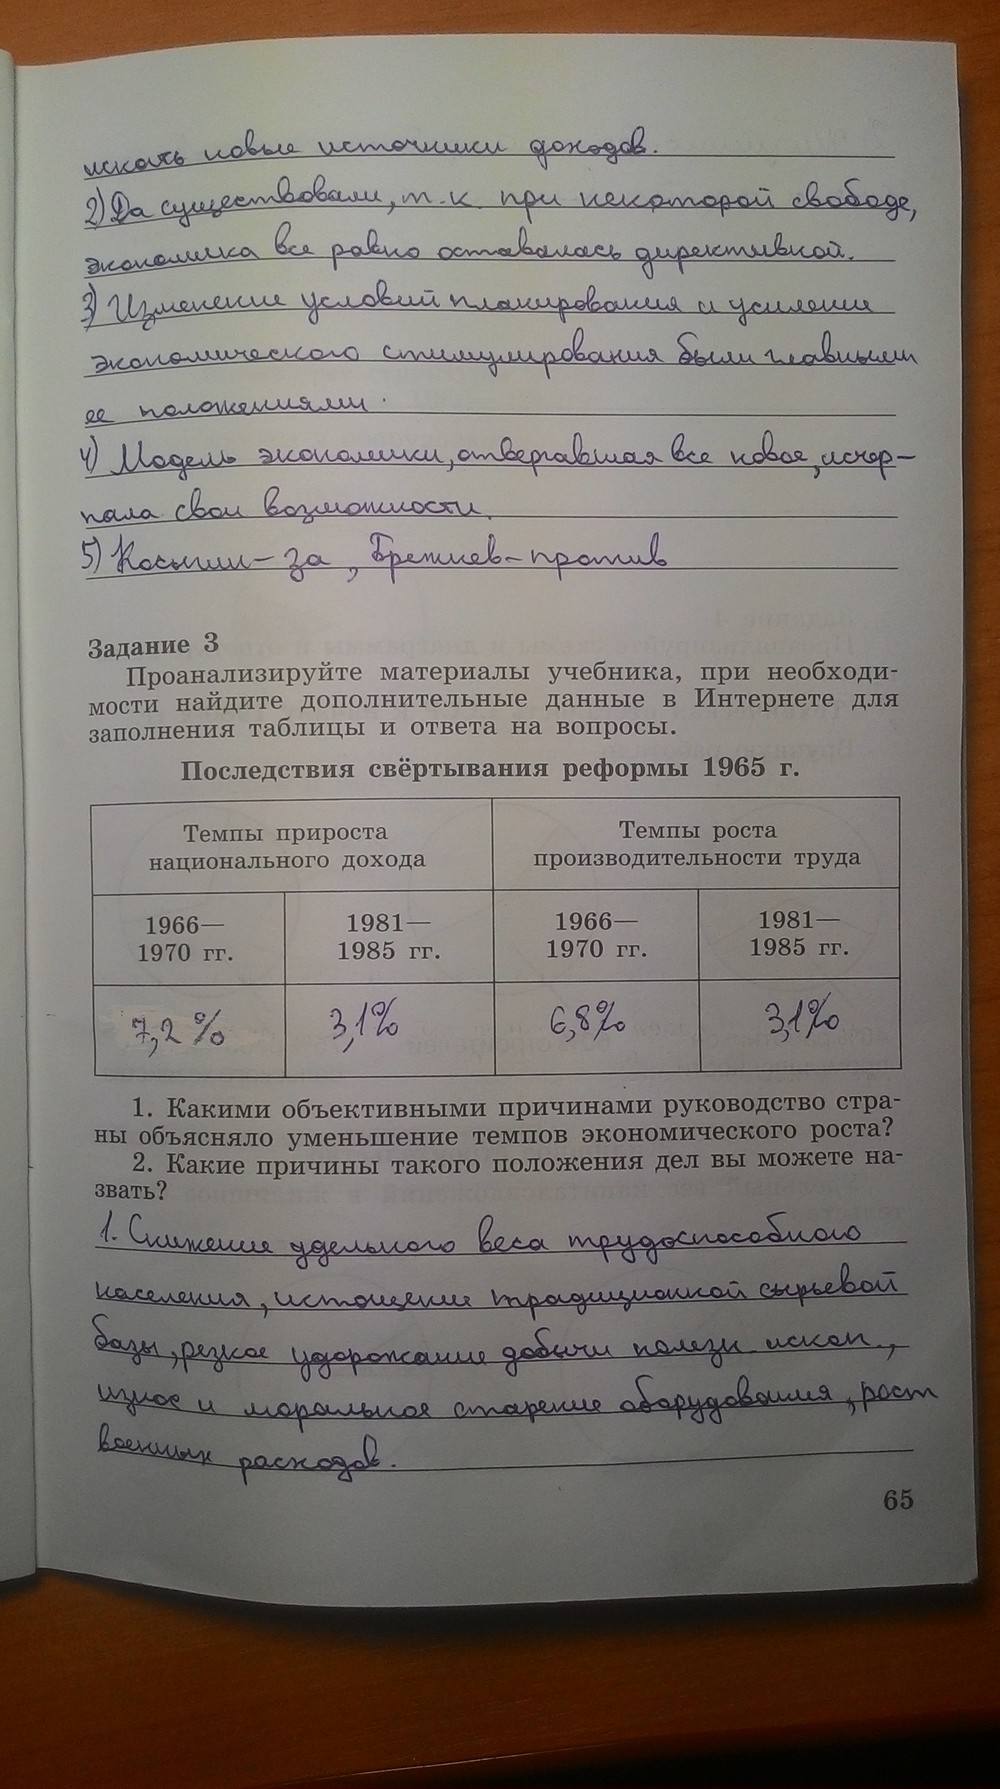 искать новые источники доходов.
2) Да существовали, т.к. при некоторой свободе,
экономика все равно оставалась директивной.
3) Изменение условий планирования и усиление
экономического стимулирования были главными
ее положениями.
4) Модель экономики, отвергавшая все новое, исчер-
пала свои возможности.
5) Косыгин – за, Брежнев – против
Задание 3
Проанализируйте материалы учебника, при необходи-
мости найдите дополнительные данные в Интернете для
заполнения таблицы и ответа на вопросы.
Последствия свёртывания реформы 1965 г.
Темпы прироста
национального дохода
Темпы роста
производительности труда
1966—
1970 гг.
1981—
1985 гг.
1966—
1970 гг.
1981—
1985 гг.
7,2 %
3,1%
6,8%
3,1%
1. Какими объективными причинами руководство стра-
ны объясняло уменьшение темпов экономического роста?
2. Какие причины такого положения дел вы можете на-
звать?
1. Снижение удельного веса трудоспособного
населения, истощение традиционной сырьевой
базы, резкое удорожание добычи полезн. ископ.,
износ и моральное старение оборудования, рост
военных расходов.
65